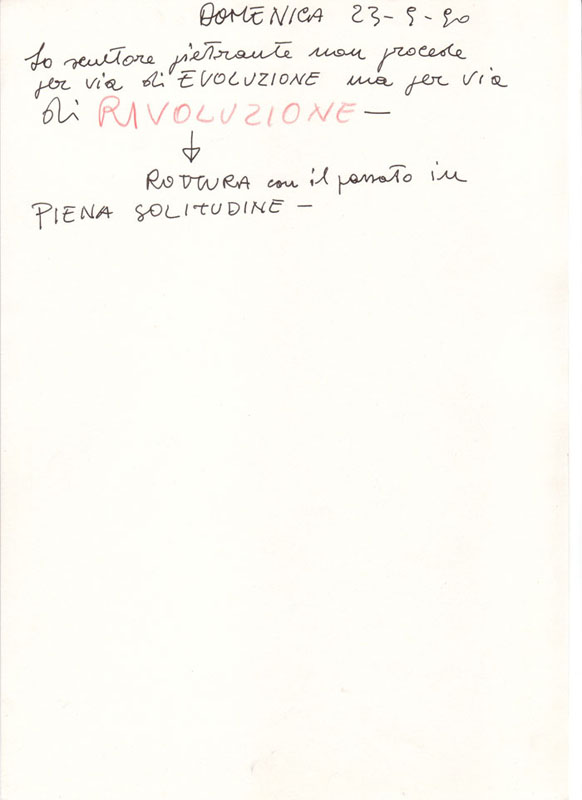 DOMENICA 23-9-90
Lo scultore pietrante non procede
per via di EVOLUZIONE ma per via
di RIVOLUZIONE —
ROTTURA con il passato in
PIENA SOLITUDINE —